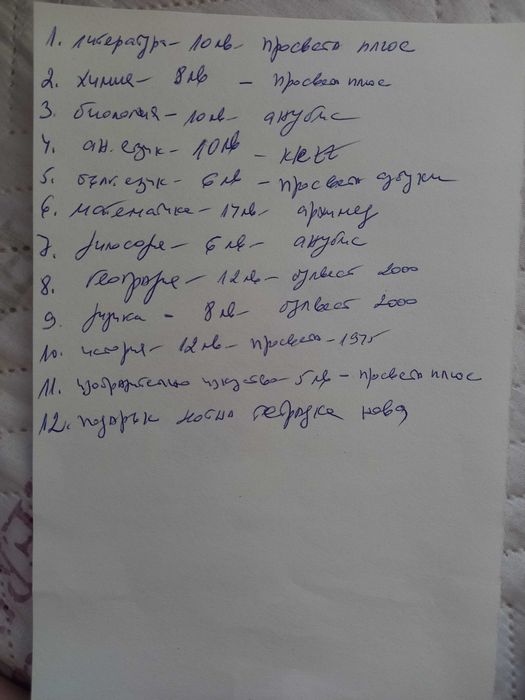 1. литература - 10лв - просвета плюс
2. химия - 8лв - просвета плюс
3. биология - 10лв - анубис
4. ан. език - 10лв -
5. бълг. език - 6лв - просвета азбуки
6. математика - 17лв - архимед
7. философия - 6лв - анубис
8. география - 12лв - булвест 2000
9. физика - 8лв - булвест 2000
10. история - 12лв - просвета - 1975
11. изобразително изкуство - 5лв - просвета плюс
12. подарък нотна тетрадка нова